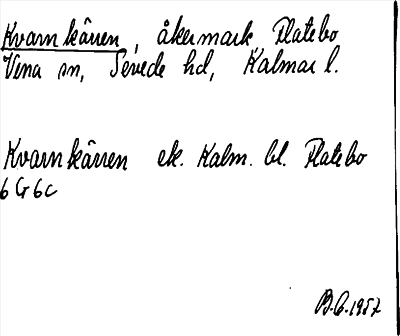 Kvarnkärren, åkermark Flatebo
Vena sn, Sevede hd, Kalmar l.
Kvarnkärren ek. Kalm. bl. Flatebo
6 G 6c
B.G. 1957